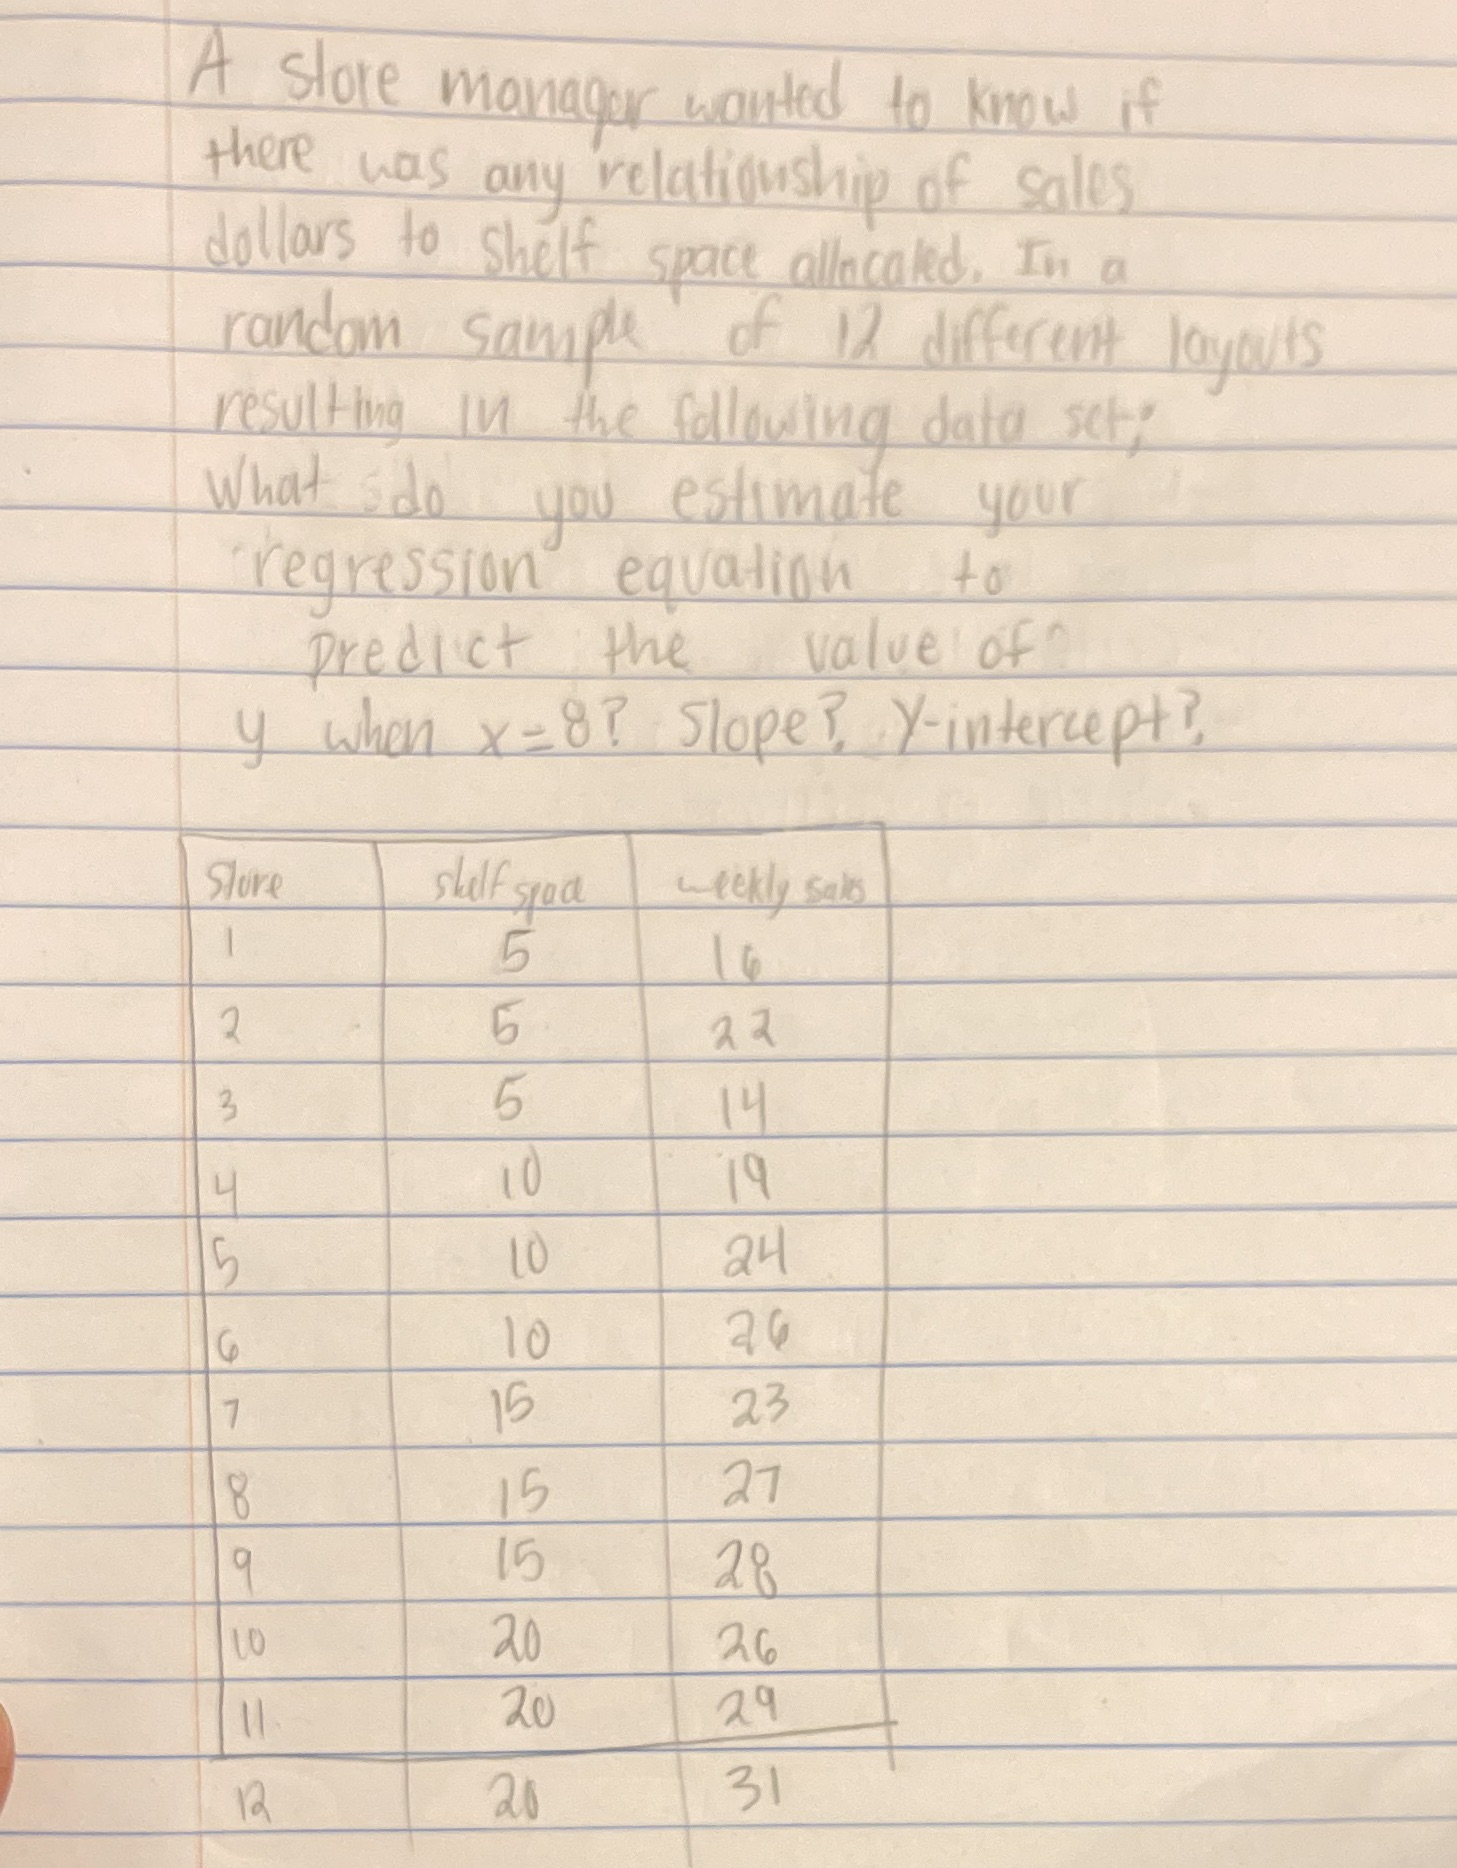 A store manager wanted to know if
there was any relationship of sales
dollars to shelf space allocated. In a
random sample of 12 different layouts
resulting in the following data set;
What do you estimate your
regression equation to
predict the value of
y when x=8? Slope? Y-intercept?
Store shelf space weekly sales
1 5 16
2 5 22
3 5 14
4 10 19
5 10 24
6 10 26
7 15 23
8 15 27
9 15 28
10 20 26
11 20 29
12 20 31